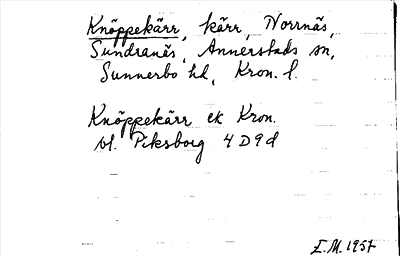 Knöppekärr, kärr, Norrnäs,
Sundranäs, Annerstads sn,
Sunnerbo hd, Kron. l.
Knöppekärr ek Kron.
bl. Piksborg 4 D 9 d
E.M. 1957